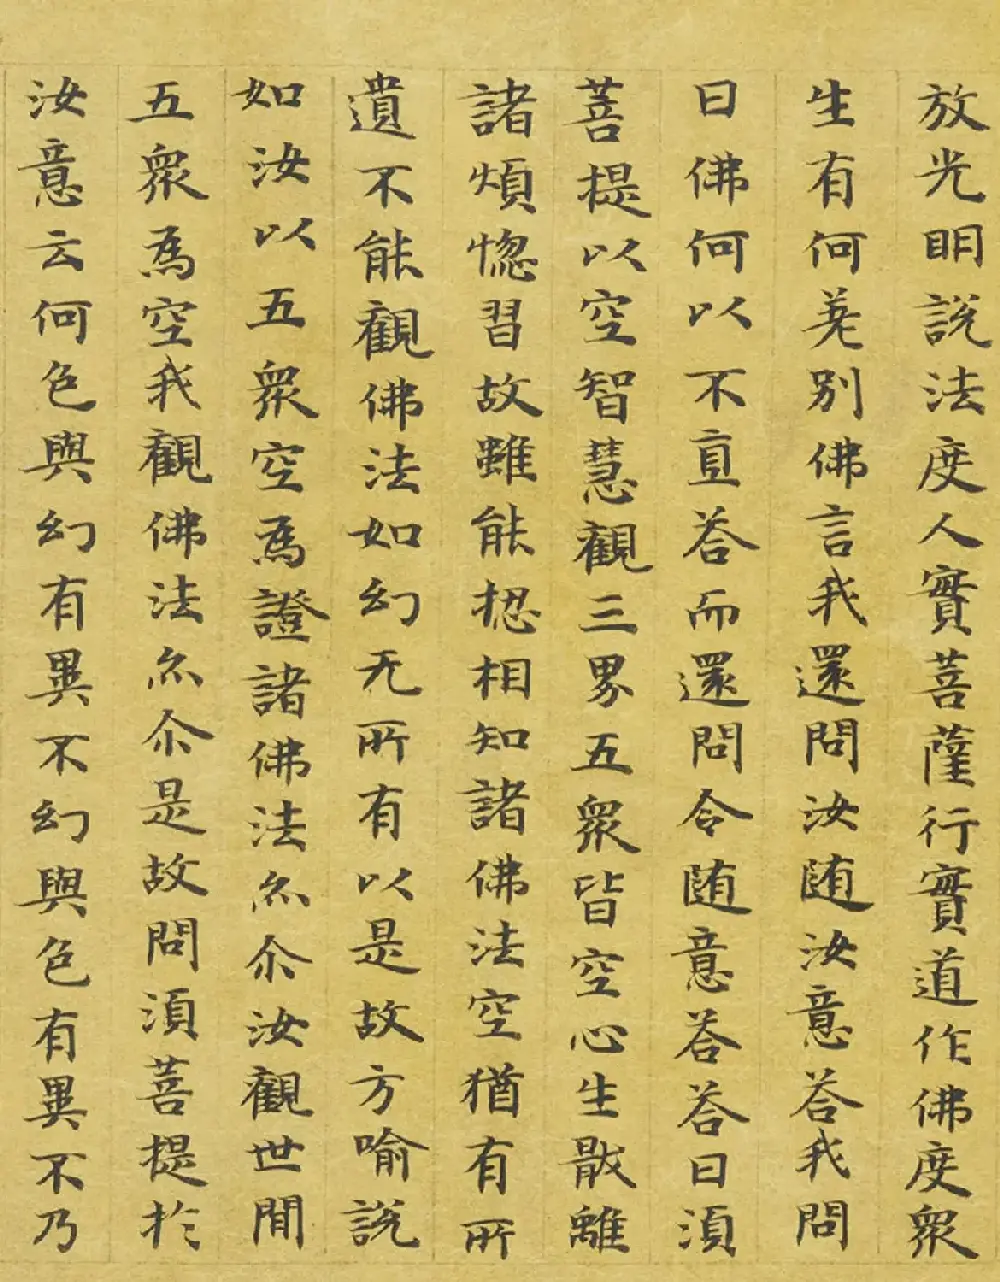 放光明說法度人實菩薩行實道作佛度衆
生有何差別佛言我還問汝随汝意荅我問
曰佛何以不直荅而還問令随意荅荅曰湏
菩提以空智慧觀三界五衆皆空心生猒離
諸煩惚習故雖能揔相知諸佛法空猶有所
遺不能觀佛法如幻无所有以是故方喻說
如汝以五衆空爲證諸佛法尒尒汝觀世間
五衆爲空我觀佛法尒尒是故問湏菩提於
汝意云何色與幻有異不幻與色有異不乃